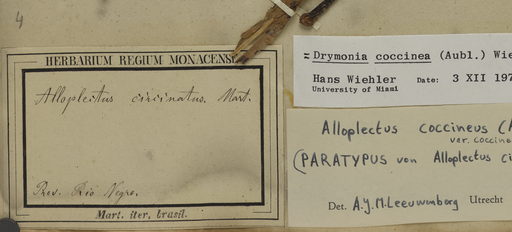 4
HERBARIUM REGIUM MONACENSE
Alloplectus circinatus. Mart.
Prov. Rio Negro.
Mart. iter. brasil.
= Drymonia coccinea (Aubl.) Wie
Hans Wiehler Date: 3 XII 197
University of Miami
Alloplectus coccineus (A
var. coccine
(PARATYPUS von Alloplectus ci
Det. A.J.M. Leeuwenberg Utrecht